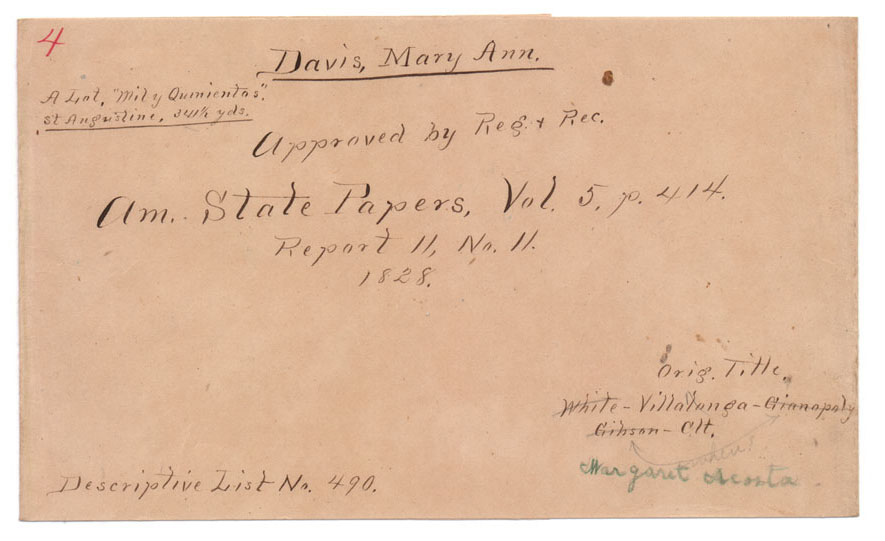 4
Davis, Mary Ann.
A Lot, "Mil y Quinientas".
St Augustine, 341½ yds.
Approved by Reg. & Rec.
Am. State Papers, Vol. 5, p. 414.
Report 11, No. 11.
1828.
Orig. Title.
White - Villalonga - Gianopoly
Gibson - Clt.
Margaret Acosta
Descriptive List No. 490.